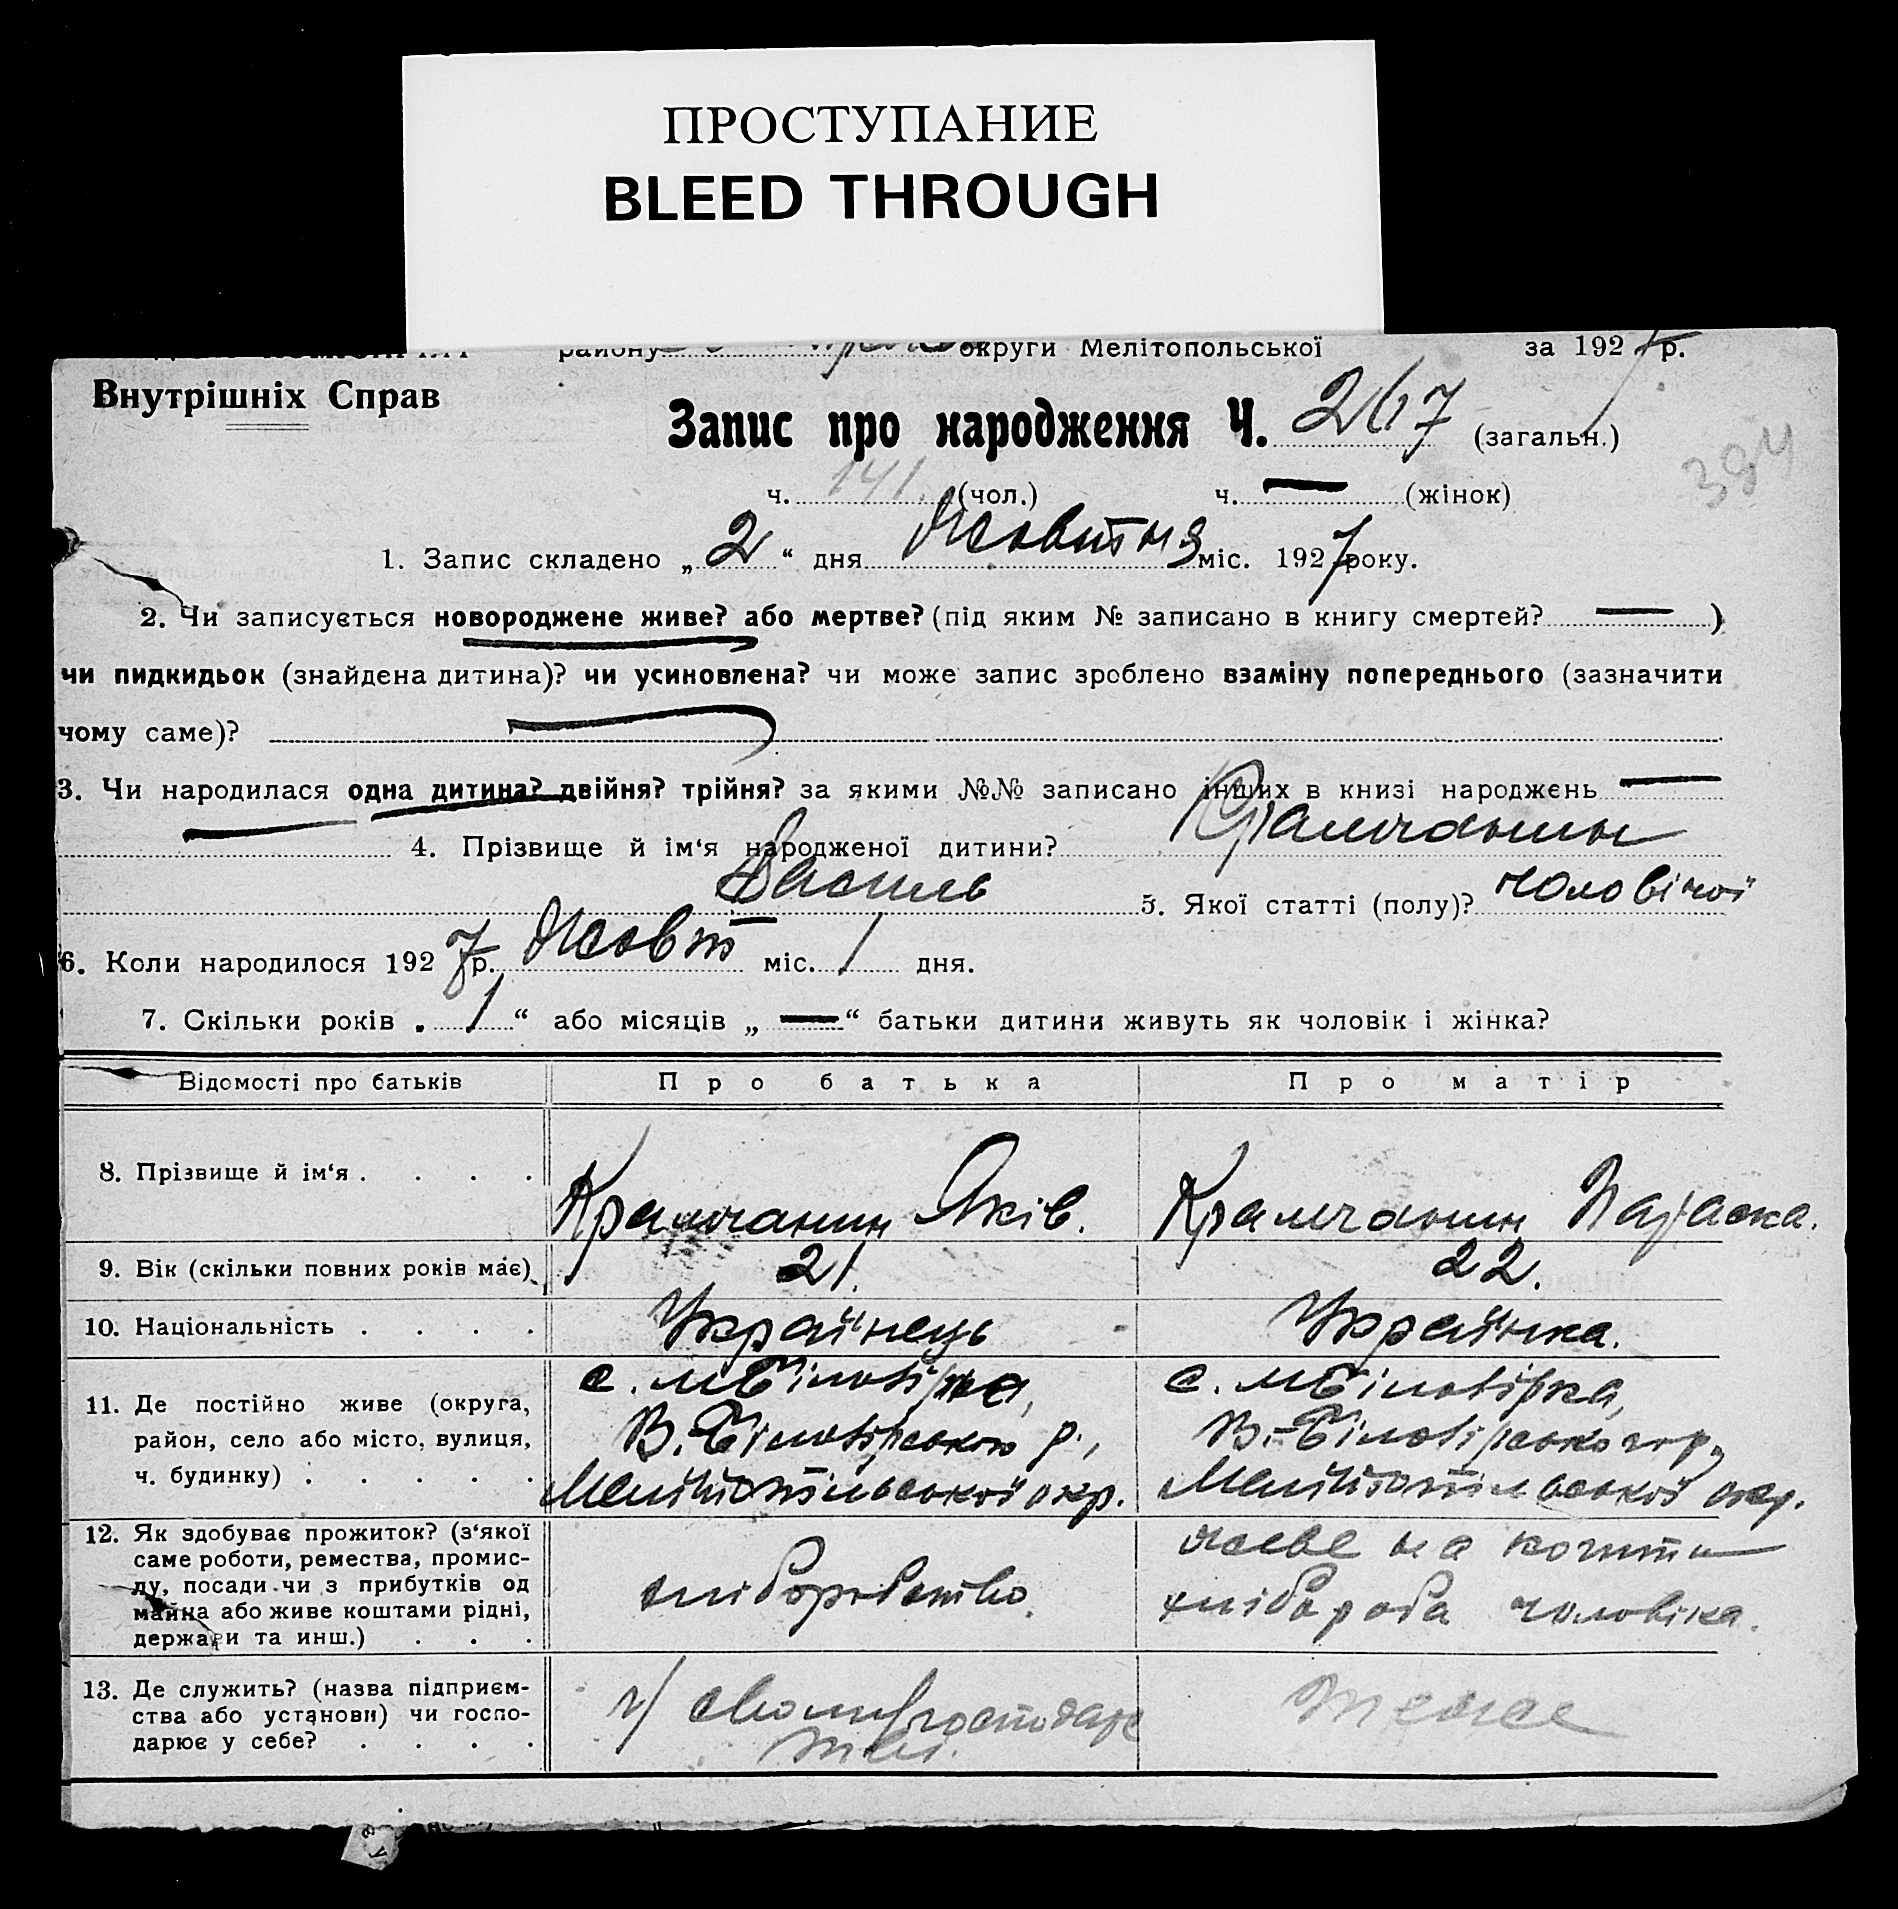 ПРОСТУПАНИЕ
BLEED THROUGH
району округи Мелітопольської за 1927 р.
Внутрішніх Справ
Запис про народження Ч. 267 (загальн.)
394
ч. 141. (чол.) ч. — (жінок)
1. Запис складено „2“ дня Жовтня міс. 1927 року.
2. Чи записується новороджене живе? або мертве? (під яким № записано в книгу смертей? — )
чи пидкидьок (знайдена дитина)? чи усиновлена? чи може запис зроблено взаміну попереднього (зазначити
чому саме)?
3. Чи народилася одна дитина? двійня? трійня? за якими №№ записано інших в книзі народжень —
— 4. Прізвище й ім‘я народженої дитини? Крамчанин
Василь 5. Якої статті (полу)? чоловічої
6. Коли народилося 1927 р. Жовт міс. 1 дня.
7. Скільки років „1“ або місяців „—“ батьки дитини живуть як чоловік і жінка?
Відомості про батьків Про батька Про матір
8. Прізвище й ім‘я . . . . Крамчанин Яків. Крамчанин Параска.
9. Вік (скільки повних років має) 21. 22.
10. Національність . . . . Українець Українка.
11. Де постійно живе (округа,
район, село або місто, вулиця,
ч. будинку) . . . . .
с. м Білозірка,
В.-Білозірського р.,
Мелітопільської окр.
с. м Білозірка,
В.-Білозірського р.,
Мелітопільської окр.
12. Як здобуває прожиток? (з‘якої
саме роботи, ремества, промис-
лу, посади чи з прибутків од
майна або живе коштами рідні,
держави та инш.) . . .
хліборобство.
живе на кошти
хлібороба чоловіка.
13. Де служить? (назва підприєм-
ства або установи) чи госпо-
дарює у себе? . . . .
у своїм господарс
тві.
Теже